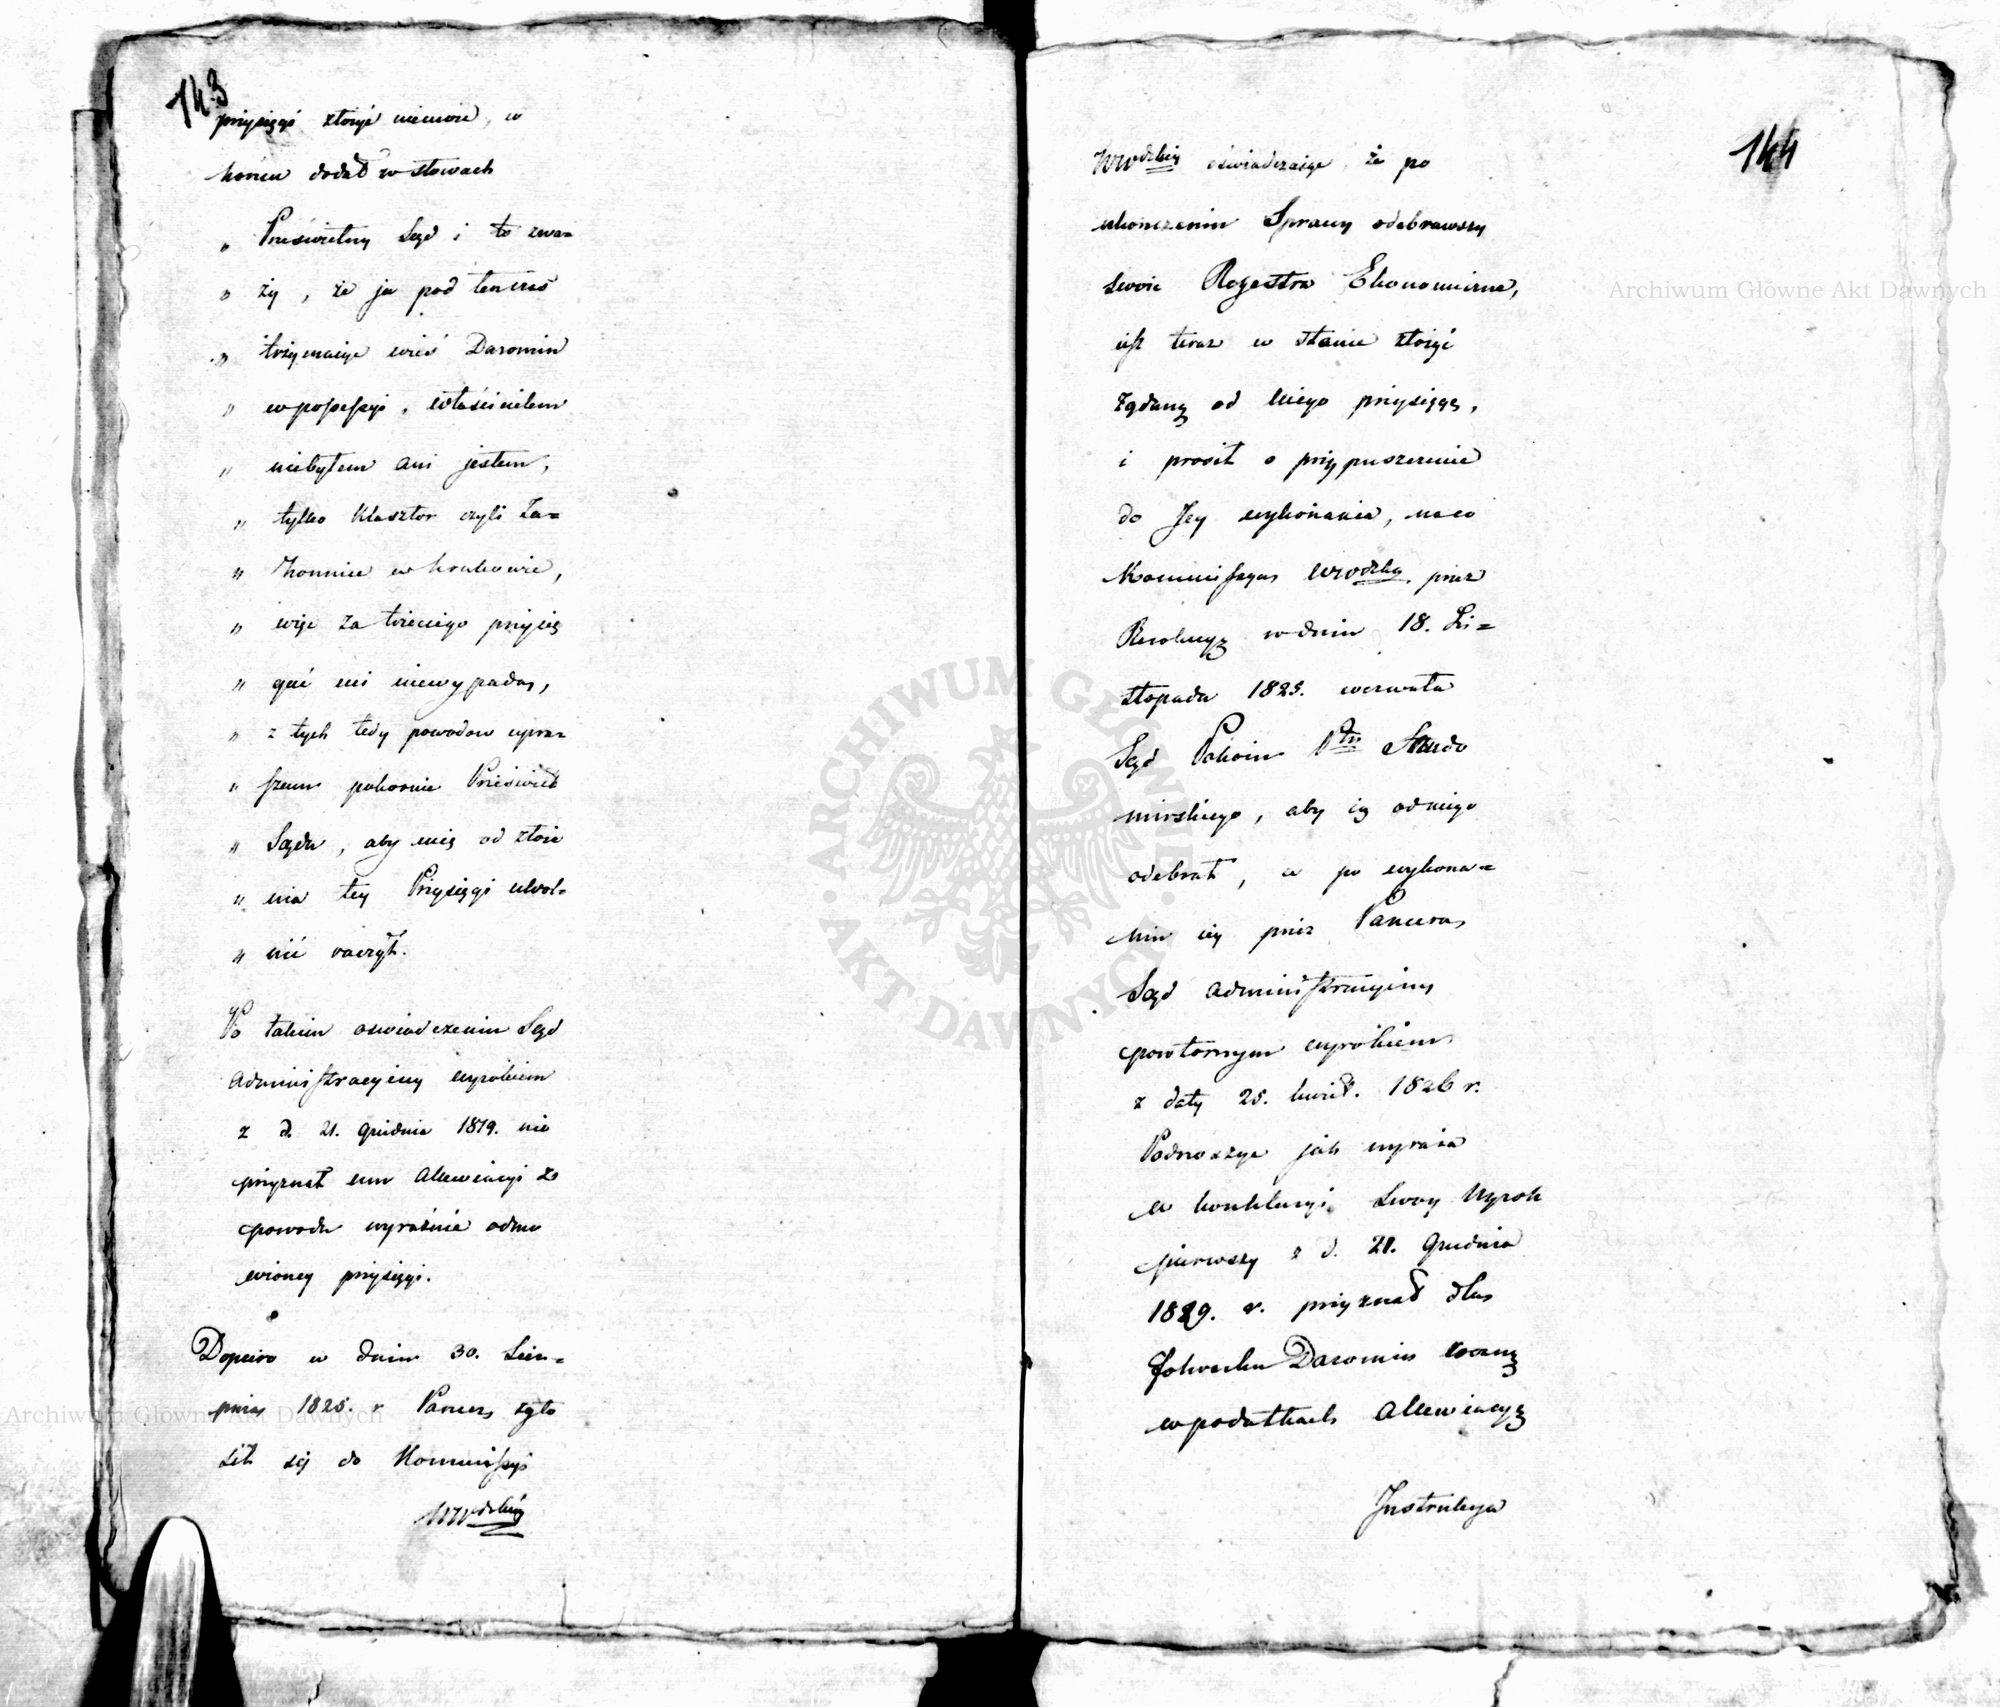 143
przysięgi złożyć niemoże, w
końcu dodał w słowach
„ Prześwietny Sąd i to zwa=
„ ży, że ja pod ten czas
„ trzymaiąc wieś Daromin
„ w possessyi, właścicielem
„ niebyłem ani jestem,
„ tylko Klasztor czyli Za=
„ konnice w
„ więc za trzeciego przysię
„ gać mi niewypada,
„ z tych tedy powodow upra=
„ szam pokornie Przeświet
„ Sądu, aby mię od złoże
„ nia tey Przysięgi uwol=
„ nić raczył.
Po takim oswiadczeniu Sąd
administracyiny wyrokiem
z d. 21. Grudnia 1819. nie
przyznał mu allewiacyi z
powodu wyraźnie odmo
wioney przysięgi.
Dopiero w dniu 30. Sier=
pnia 1825. r Pancer zgło
sił się do Kommissyi
WWdzkiéy
144
WWdzkiéy oświadczaiąc, że po
ukonczeniu Sprawy odebrawszy
swoie Regestra Ekonomiczne,
iest teraz w stanie złożyć
żądaną od niego przysięgę,
i prosił o przypuszczenie
do Jey wykonania, na co
Kommissya Wwdzka przez
Rezolucyą w dniu 18. Li=
stopada 1825. wezwała
Sąd Pokoiu Ptu Sando
mirskiego, aby ią od niego
odebrał, a po wykona=
niu iey przez Pancera,
Sąd administracyiny
powtornym wyrokiem
z daty 25. kwiet. 1826 r.
Podnosząc jak wyraża
w konkluzyi swoy Wyrok
pierwszy z d. 21. Grudnia
1819. r. przyznał dla
folwarku Daromin roczną
w podatkach allewiacyą
Instrukcya
Archiwum Główne Akt Dawnych
Archiwum Główne Akt Dawnych
ARCHIWUM GŁÓWNE AKT DAWNYCH